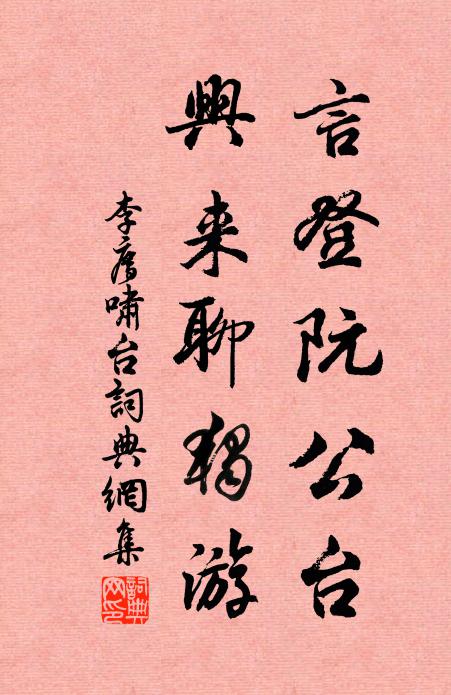 言登阮公台
興来聊獨游
李廌嘯台詞典網集
詞典网印